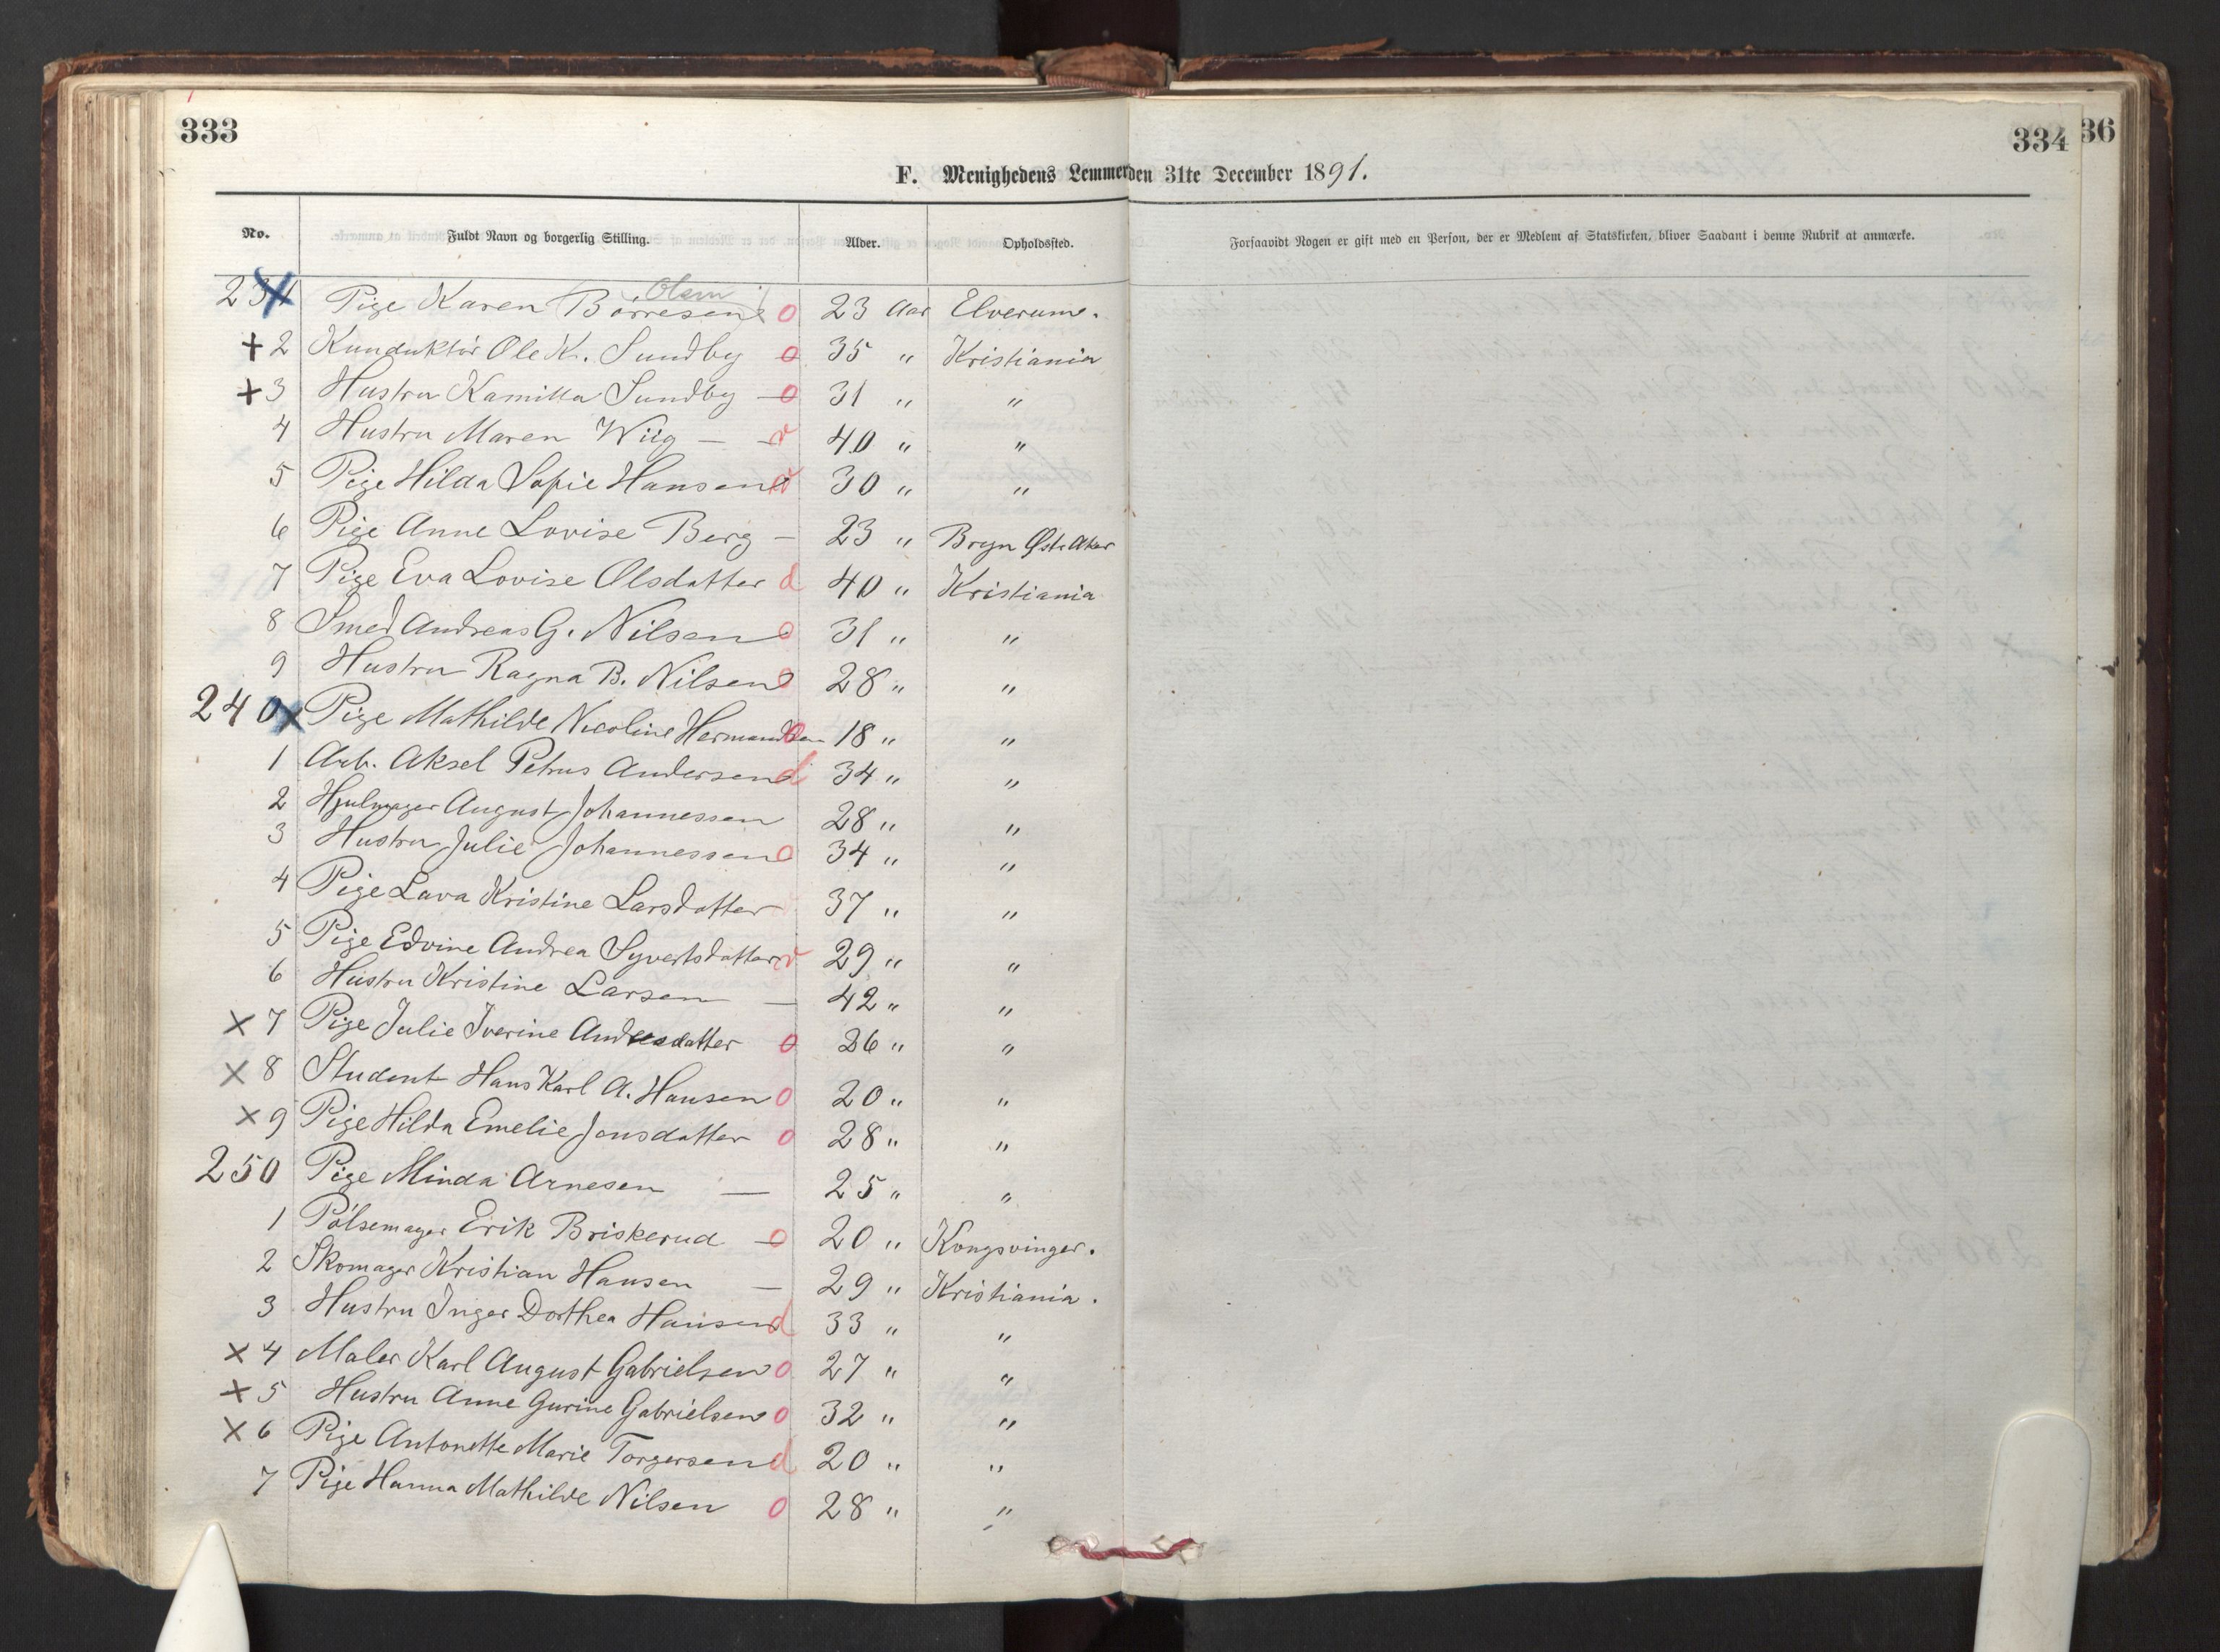 333
334
36
F. Menighedens Lemmer den 31te December 1891.
No. Fuldt Navn og borgerlig Stilling. Alder. Opholdssted. Forsaavidt Nogen er gift med en Person, der er Medlem af Statskirken, bliver Saadant i denne Rubrik at anmærke.
Olsen
231 Pige Karen Børresen o 23 Aar Elverum.
+ 2 Kunduktör Ole K. Sundby o 35 " Kristiania
+ 3 Hustru Kamilla Sundby — o 31 " "
4 Hustru Maren Wiig — v 40 " "
5 Pige Hilda Sofie Hansen v 30 " "
6 Pige Anne Lovise Berg — 23 " Bryn Øst. Aker
7 Pige Eva Lovise Olsdatter d 40 " Kristiania
8 Smed Andreas G. Nilsen o 31 " "
9 Hustru Ragna B. Nilsen o 28 " "
240 x Pige Mathilde Nicoline Hermandsen o 18 " "
1 Arb. Aksel Petrus Andersen d 34 " "
2 Hjulmager August Johannessen 28 " "
3 Hustru Julie Johannessen o 34 " "
4 Pige Lava Kristine Larsdatter 37 " "
5 Pige Edvine Andrea Syvertsdatter v 29 " "
6 Hustru Kristine Larsen — 42 " "
x 7 Pige Julie Iverine Andreasdatter o 26 " "
x 8 Student Hans Karl A. Hansen o 20 " "
x 9 Pige Hilda Emelie Jonsdatter o 28 " "
250 Pige Minda Arnesen — 25 " "
1 Pölsemager Erik Briskerud — o 20 " Kongsvinger.
2 Skomager Kristian Hansen — 29 " Kristiania.
3 Hustru Inger Dorthea Hansen d 33 " "
x 4 Maler Karl August Gabrielsen o 27 " "
x 5 Hustru Anne Gurine Gabrielsen o 32 " "
x 6 Pige Antonette Marie Torgersen d 20 " "
7 Pige Hanna Mathilde Nilsen o 28 " "